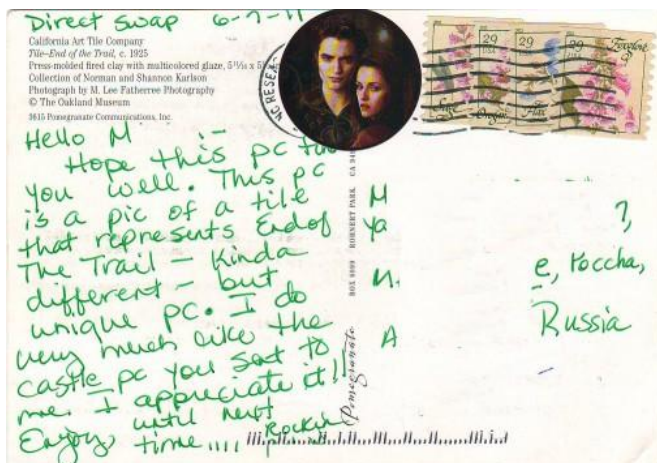 Direct Swap 6-7-11
California Art Tile Company
Tile–End of the Trail, c. 1925
Press-molded fired clay with multicolored glaze, 5 13/16 x 5
Collection of Norman and Shannon Karlson
Photograph by M. Lee Fatherree Photography
© The Oakland Museum
3615 Pomegranate Communications, Inc.
Hello M :-
Hope this pc
you well. This pc
is a pic of a tile
that represents End of
The Trail – Kinda
different – but
unique pc. I do
very much like the
castle pc you sent to
me. I appreciate it!!
Enjoy, until next
time....
NC RESEA
29 USA
29
29
Foxglove
Oregon
Flax
BOX 6099 ROHNERT PARK, CA 949
Pomegranate
M
Ya
И.
A
?,
e, Россна,
Russia